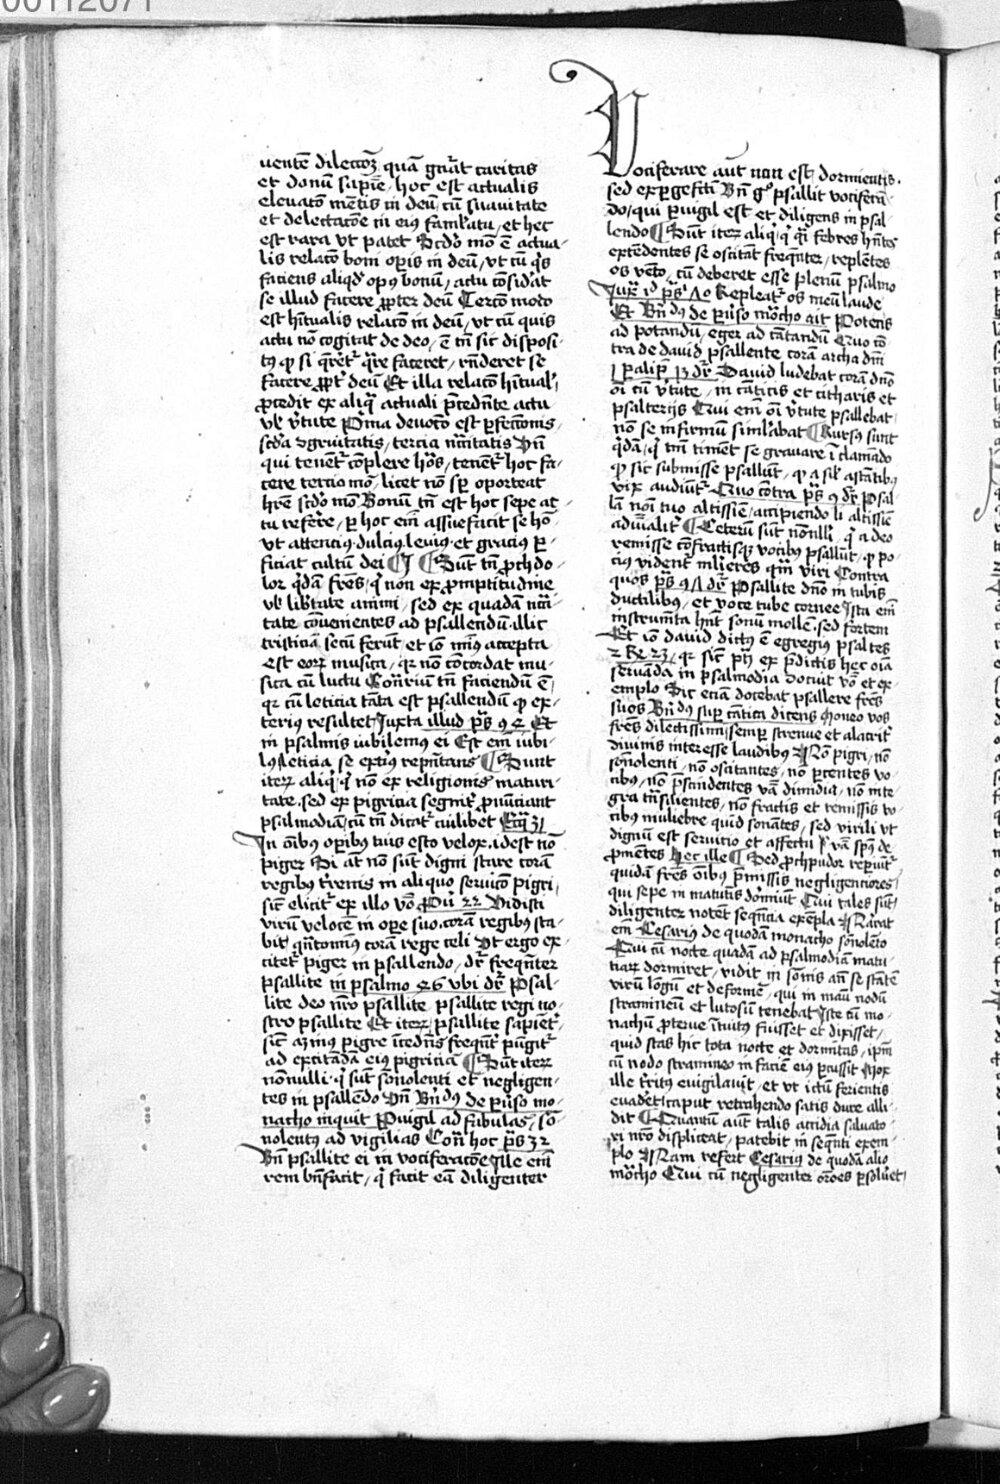 00112071
uentē dilectōȝ quā gn̄at caritas
et donū sapīe, hoc est actualis
eleuatō mētis in deū, cū suauitate
et delectacōe in eius famłatu, et hec
est rara vt patet Scd̄o mō ē actua-
lis relatō boni op̄is in deū, vt cū q̇s
faciens aliqd̄ opꝰ bonū, actu cōsidat
se illud facere ꝓpter deū Tercō modo
est hītualis relatō in deū, vt cū quis
actu nō cogitat de deo, ē tn̄ sic disposi-
tꝰ ꝙ si q̄reret᷑ q̄re faceret, rn̄deret se
facere ꝓpt̄ deū Et illa relatō hītual᷒
ꝓcedit ex aliq̄ actuali p̄cedn̄te actu
vl̄ v̄tute Pͥma deuotō est ꝑfectionis,
scd̄a ꝯgruitatis, tercia nc̄citatis Vn̄
qui tenent᷑ cōplere hōs, tenent᷑ hoc fa-
cere tercio mō, licet nō sp̄ oporteat
hr̄e scd̄o mō Bonū tn̄ est hoc sepe ac-
tu refer̄re, ꝑ hoc em̄ assuefacit se hō
vt attencius dulcius leuius et gracius ꝑ-
ficiat cultū dei ¶ Sūt tn̄ ꝓch do-
lor q̇dā fr̄es, q̇ non ex ꝓmptitudine
vl̄ lib̄tate animi, sed ex quadā nc̄i-
tate cōuenientes ad psallendū illic
tristiciā secū ferūt et iō minꝰ accepta
est eoꝝ musica, qꝛ nō cōcordat mu-
sica cū luctu Cōn̄riū tn̄ faciendū ē
qꝛ cū leticia tāta est psallendū ꝙ ex-
teriꝰ resultet Juxta illud ps̄ 94 Et
in psalmis iubilemus ei Est em̄ iubi-
lꝰ leticia se extiꝰ rep̄ntans ¶ Sunt
iteꝝ aliq̇ q̇ nō ex religionis maturi-
tate, sed ex pigricia segnit᷑ ꝓnūciant
psalmodiā, cū tn̄ dicat᷑ cuilibet Ecc̄i 31
In om̄ibꝰ opibꝰ tuis esto velox, id est nō
piger Si at̄ nō sūt digni stare corā
regibꝰ t̄renis in aliquo seruicō pigri,
sic̄ elicit᷑ ex illo vō Ꝓu 22 Vidisti
virū velocē in oꝑe suo, corā regibꝰ sta-
bit, q̄ntominꝰ corā rege celi Vt ergo ex-
citet᷑ piger in psallendo, dr̄ freqn̄ter
psallite in psalmo 46 vbi dr̄ Psal-
lite deo nr̄o psallite, psallite regi no-
stro psallite Et iteꝝ psallite sapient᷑,
sic̄ asinus pigre īcedn̄s freqn̄t᷑ pūgit᷑
ad excitādā eiꝰ pigriciā ¶ Sūt iteꝝ
nōnulli q̇ sūt sōnolenti et negligen-
tes in psallēdo Vn̄ Bn̄dꝰ de ꝑuſo mo-
nacho inquit Ꝑuigil ad fabulas, sō-
nolentꝰ ad vigilias Con̄ hoc ps̄ 32
Bn̄ psallite ei in vociferacōe Ille em̄
rem bn̄ facit, q̇ facit eā diligenter
Vociferare aūt non est dormientis,
sed exꝑgefcti Vn̄ gͦ psallit vociferā-
do, qui ꝑuigil est et diligens in psal-
lendo ¶ Sūt iteꝝ aliq̇, q̇ q̄i febres hn̄tes
extēdentes se oscitāt freqn̄ter, replētes
os vēto, cū deberet esse plenū psalmo
Jux̄ id ps̄ 70 Repleat᷑ os meū laude
Et Bn̄dꝰ de ꝑuſo mōcho ait Potens
ad potandū, eger ad cātandū Quo cō-
tra de dauid psallente corā archa dn̄i
1 paliꝑ 13 dr̄ Dauid ludebat corā dn̄o
oī cū v̄tute, in cāticis et citharis et
psalterijs Qui em̄ oī v̄tute psallebat
nō se infirmū simłabat ¶ Rursꝰ sunt
q̇dā, q̇ tm̄ timēt se grauare ī clamādo
ꝙ sic submisse psallūt, ꝙ a sił astātibꝰ
vix audiūt᷑ Quo cōtra ps̄ 9 dr̄ Psal-
lā noī tuo altissīe, accipiendo li altissīe
aduͥalit᷑ ¶ Ceterū sūt nōnulli, q̇ adeo
remisse cōfractisqꝫ vocibꝰ psallūt, ꝙ po-
ciꝰ vident᷑ mlieres q̄m viri Contra
quos ps̄ 97 dr̄ Psallite dn̄o in tubis
ductilibus, et voce tube cornee Ista em̄
instrumn̄ta hn̄t sonū mollē, sed fortem
Et iō dauid dictꝰ ē egregiꝰ psaltes
2 Re 23, qꝛ sic̄ pꝫ ex p̄dictis hec oīa
seruanda in psalmodia docuit vō et ex-
emplo Sic eciā docebat psallere fr̄es
suos Bn̄dꝰ suꝑ cātica dicens Moneo vos
fr̄es dilectissimi, semꝑ strenue et alacrit᷑
diuinis interesse laudibus Nō pigri, nō
sōnolenti, nō oscitantes, nō ꝑcentes vo-
cibꝰ, nō p̄scindentes v̄ba dimidia, nō inte-
gra tn̄silientes, nō fractis et remissis vo-
cibꝰ muliebre quid sonātes, sed virili vt
dignū est seruicio et affectu ſ v̄ba spūs de-
ꝓmētes Hec ille ¶ Sed ꝓch pudor repiūt᷑
quidā fr̄es om̄ibꝰ p̄missis negligenciores
qui sepe in matutis dormiūt Qui tales sūt,
diligenter notēt seqn̄cia exēpla Narrat
em̄ Cesarius de quodā monacho sōnolēto
Qui cū nocte quadā ad psalmodiā matu-
tiaꝝ dormiret, vidit in sōnis an̄ se stātē
virū lōgū et deformē, qui in manu nodū
stramineū et lutosū tenebat Iste cū mo-
nachū ꝓterue ītuitꝰ fuisset et dixisset,
quid stas hic tota nocte et dormitas, ip̄m
cū nodo stramineo in faciē eiꝰ ꝑcussit Mox
ille t̄ritꝰ euigilauit, et vt ictū ferientis
euadet caput retrahendo satis dure alli-
dit ¶ Quantū aut talis accidia saluato-
ri nr̄o displiceat, patebit in seqn̄ti exem-
plo Nam refert Cesarius de quodā alio
mōcho Qui cū negligenter or̄oes ꝑsoluet᷑